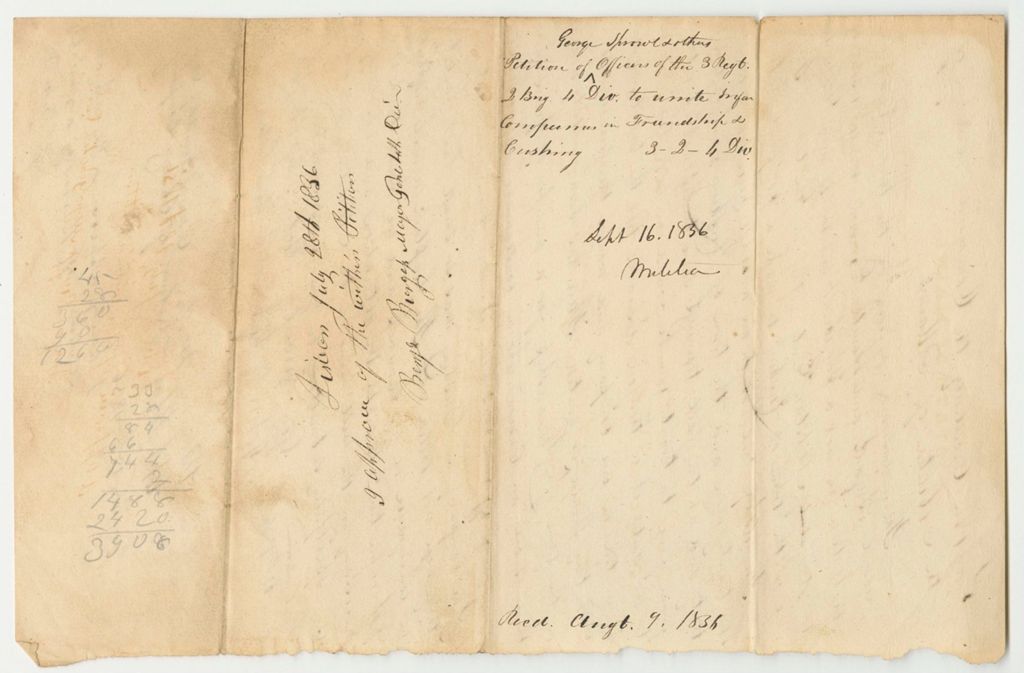 45
28
1264
28
84
66
744
1488
2420
3908
Lisbon July 28th 1836
I approve of the within Petition
Benja Burgess Major Genl 4th Divin
George Sprowl & others
Petition of ^ Officers of the 3 Regt.
2 Brig 4 Div. to unite Infan
Companies in Friendship &
Cushing 3-2-4 Div
Sept 16. 1836
Militia
Recd. Augt. 9. 1836